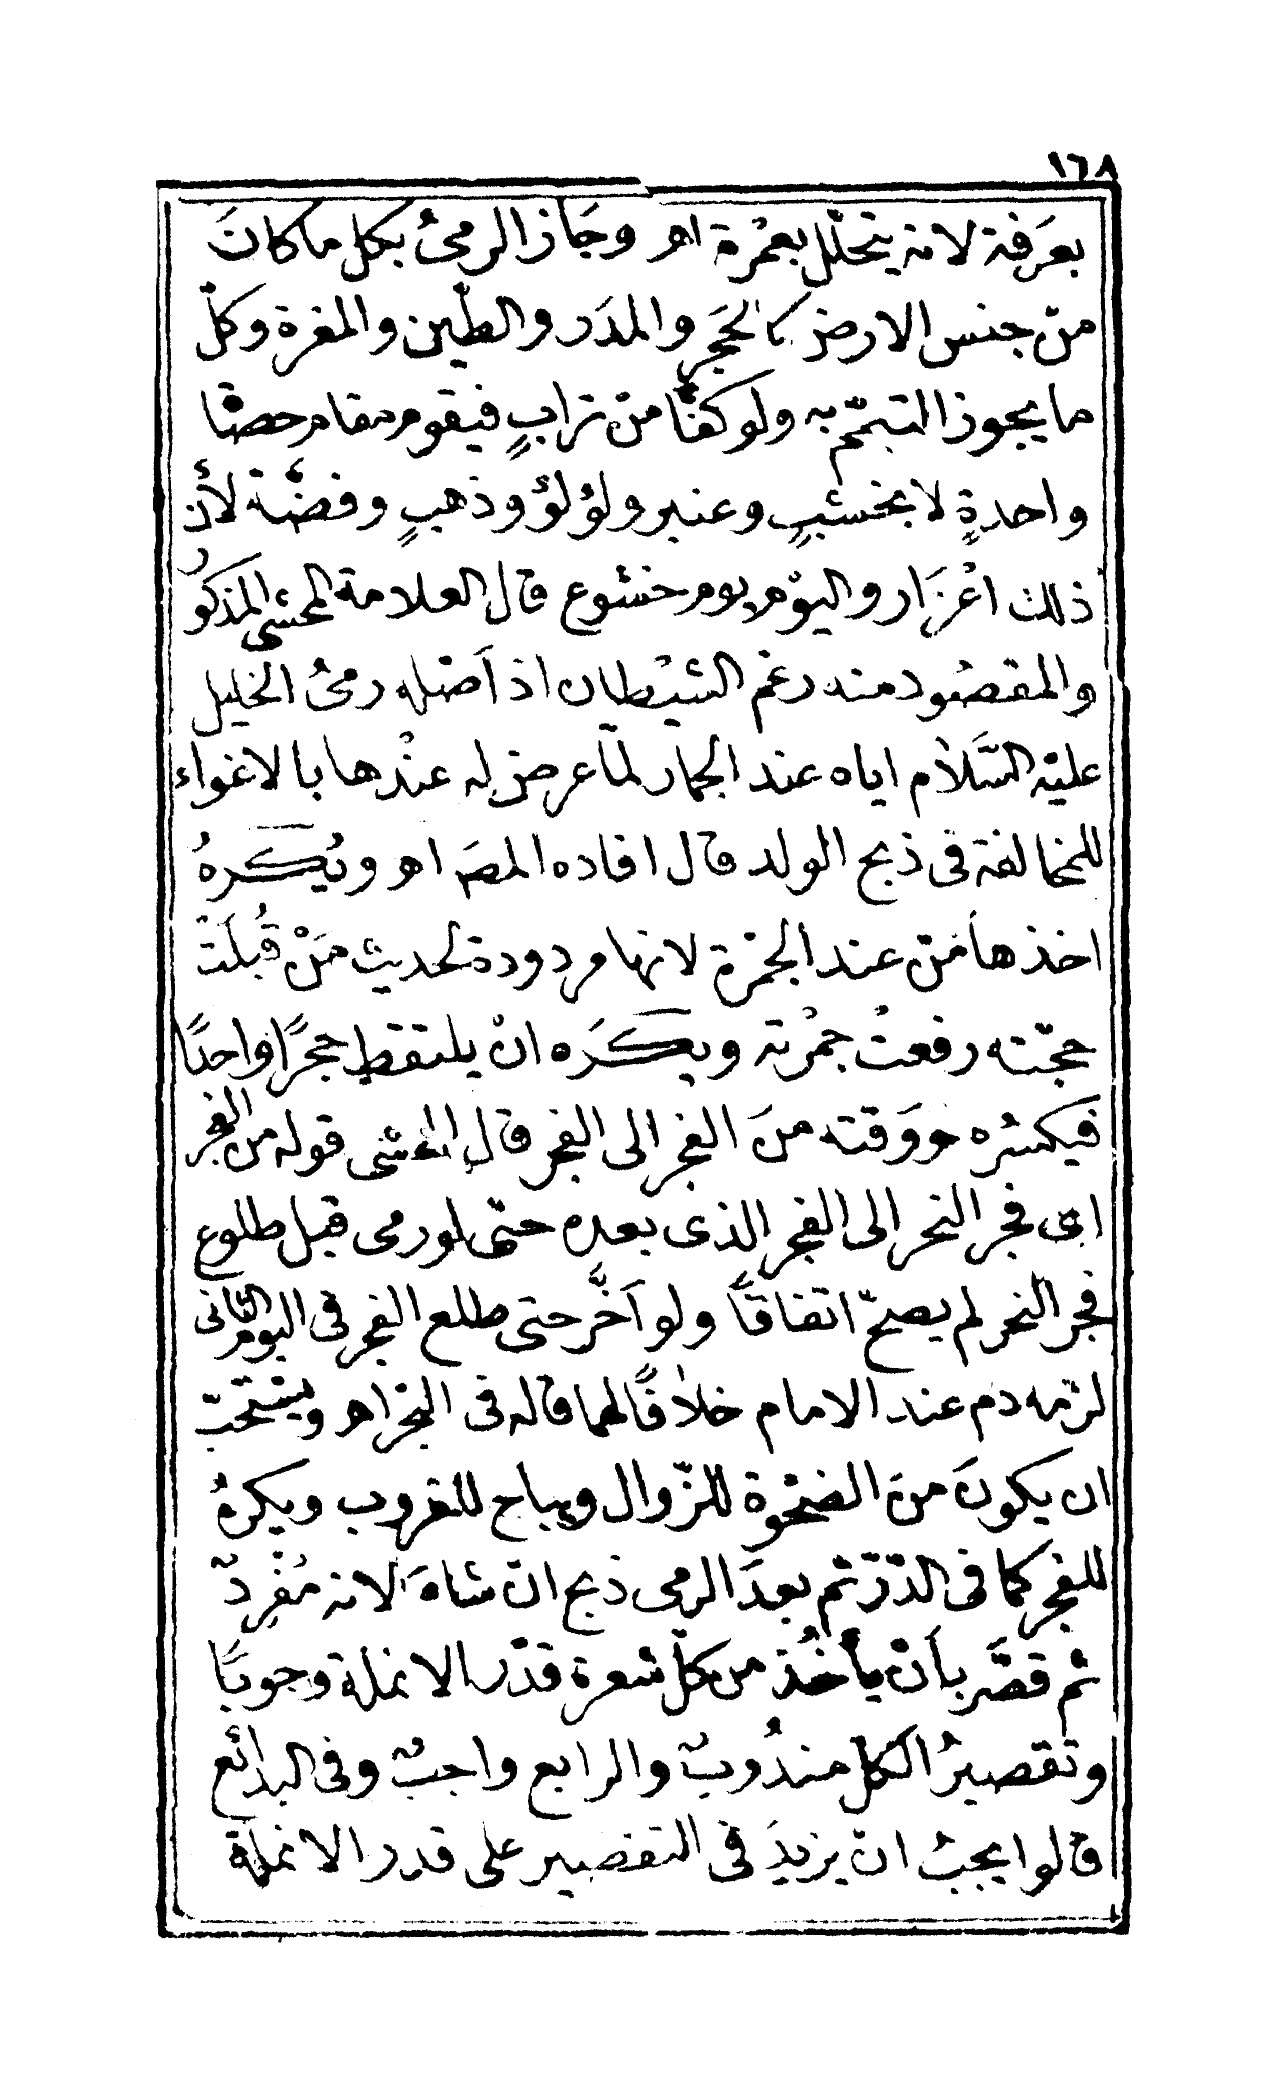 ١٦٨
بعَرَفة لانه يتحلّل بعمْرة اهـ وجَاز الرمىُ بكل ما كانَ
منْ جنس الارض كالحَجَر والمدَر والطّين والمغرة وكلّ
ما يجوز التيمّم به ولو كفًّا منْ ترابٍ فيقوم مقام حصاة
واحدةٍ لا بخشبٍ وعنبر ولؤلؤ وذهبٍ وفضّة لأنّ
ذلك اعْزَاز واليوْم يوم خشوع قال العلامة المحشى المذكورُ
والمقصُود منه رغم الشيْطان اذ اَصْله رمىُ الخليل
عليْه السَّلاٰم اياه عند الجمار لمّا عرض له عنْدها بالاغواء
للمخالفة فى ذبح الولد قال افاده المصَ اهـ ويُكرهُ
اخذها منْ عند الجمْرة لانها مردودة لحديث مَنْ قُبلَتْ
حجّته رفعتْ جمْرته ويكرَه انْ يلتقط حجرًا واحدًا
فيكسُره ووَقته منَ الفجر الى الفجر قال المحشى قوله من الفجر
اى فجر النحر الى الفجر الذى بعده حتّى لو رمى قبل طلوع
فجر النحر لم يصحّ اتفاقاً ولو اَخَّر حتى طلع الفجر فى اليوم الثانى
لزمه دم عند الامام خلاٰفًا لهما قاله فى البحْر اهـ ويسْتحبّ
ان يكونَ منَ الضحْوة للزّوال ويباح للغروب ويكرهُ
للفجر كما فى الدّرّ ثم بعدَ الرمى ذبح انْ شاءَ لانه مُفْردٌ
ثم قصَّر بأنْ يأخُذ من كلّ شعرة قدْر الانملة وجوبًا
وتقصيرُ الكل مندُوبٌ والرابع واجبٌ وفى البدائع
قالوا يجبُ انْ يزيدَ فى التقصير على قدر الانملة